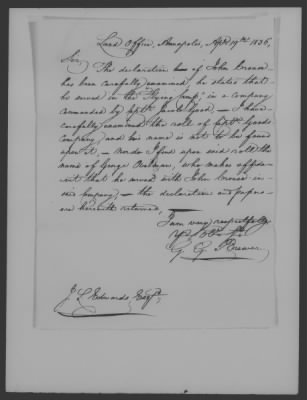 Land Office, Annapolis, Apl 19th 1836,
Sir,
The declaration of John
has been carefully examined, he states that
he served in the "Flying Camp," in a company
commanded by Capt. Jacob Good, — I have
carefully examined the roll of Capt. Goods
company, and his name is not to be found
upon it, — Nor do I find upon said roll the
name of George, who makes affida-
vit that he served with John in
this company, — the declaration and papers
are herewith returned,
I am very respectfully
Yr Obt
G. G. Brewer
J. L. Edwards Esqr.